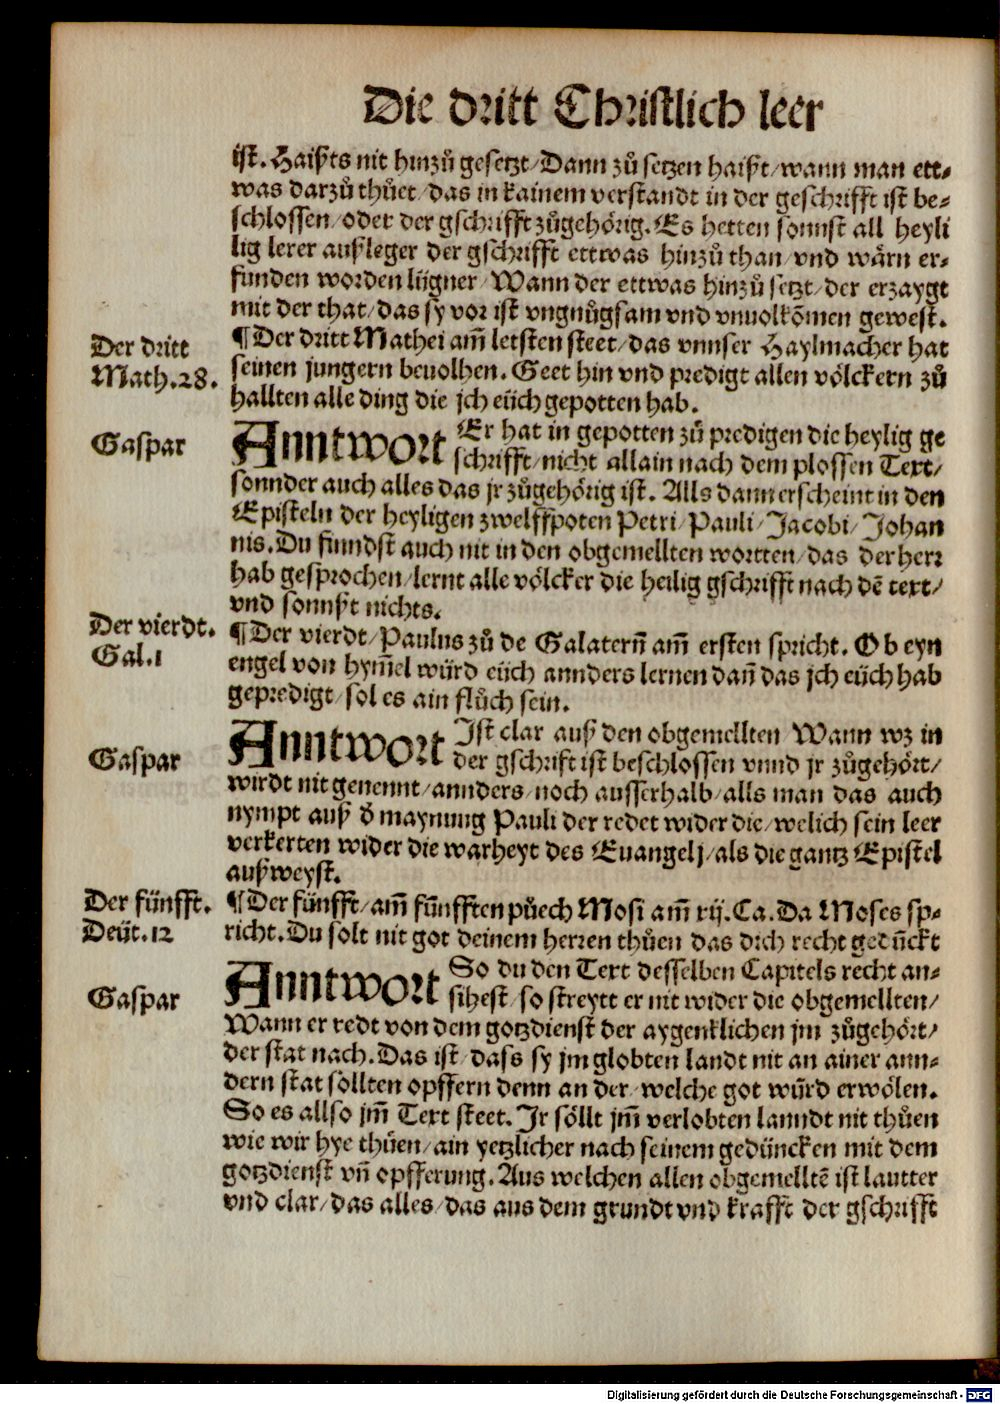 Die dritt Christlich leer
ist. Haißts nit hinzů gesetzt/Dann zů setzen haißt/wann man ett⸗
was darzů thůet/das in kainem verstandt in der geschrifft ist be⸗
schlossen/oder der gschrifft zůgehörig. Es hetten sonnst all heyli
lig lerer außleger der gschrifft ettwas hinzů than/vnd wärn er⸗
funden worden lügner/Wann der ettwas hinzů setzt/der erzaygt
mit der that/das sy vor ist vngnůgsam vnd vnuolkōmen gewest.
Der dritt
Math.28.
¶Der dritt Mathei am̄ letsten steet/das vnnser Haylmacher hat
seinen jungern beuolhen. Geet hin vnd predigt allen völckern zů
hallten alle ding die jch eüch gepotten hab.
Gaspar
Anntwort Er hat in gepotten zů predigen die heylig ge
schrifft/nicht allain nach dem plossen Text/
sonnder auch alles das jr zůgehörig ist. Alls dann erscheint in den
Episteln der heyligen zwelffpoten Petri/Pauli/Jacobi/Johan
nis. Du finndst auch nit in den obgemellten wortten/das der herr
hab gesprochen/lernt alle völcker die heilig gschrifft nach dē text/
vnd sonnßt nichts.
Der vierdt.
Gal.1
¶Der vierdt/Paulus zů de Galatern̄ am̄ ersten spricht. Ob eyn
engel von hym̄el würd eüch annders lernen dan̄ das jch eüch hab
gepredigt/sol es ain flůch sein.
Gaspar
Anntwort Ist clar auß den obgemellten Wann wz in
der gschrift ist beschlossen vnnd jr zůgehört/
wirdt nit genennt/annders/noch ausserhalb/alls man das auch
nympt auß d̄ maynung Pauli der redet wider die/welich sein leer
verkerten wider die warheyt des Euangelj/als die gantz Epistel
außweyst.
Der fünfft.
Deüt.12
¶Der fünfft/am̄ fünfften půech Mosi am̄ xij. Ca. Da Moses sp⸗
richt. Du solt nit got deinem herren thůen das dich recht gedūckt
Gaspar
Anntwort So du den Text desselben Capitels recht an⸗
sihest/so streytt er nit wider die obgemellten/
Wann er redt von dem gotzdienst der aygentlichen jm zůgehört/
der stat nach. Das ist/dass sy jm globten landt nit an ainer ann⸗
dern stat sollten opffern denn an der/welche got würd erwölen.
So es allso jm̄ Text steet. Ir söllt jm̄ verlobten lanndt nit thůen
wie wir hye thůen/ain yetzlicher nach seinem gedüncken mit dem
gotzdienst vn̄ opfferung. Aus welchen allen obgemelltē ist lautter
vnd clar/das alles/das aus dem grundt vnd krafft der gschrifft
Digitalisierung gefördert durch die Deutsche Forschungsgemeinschaft - DFG